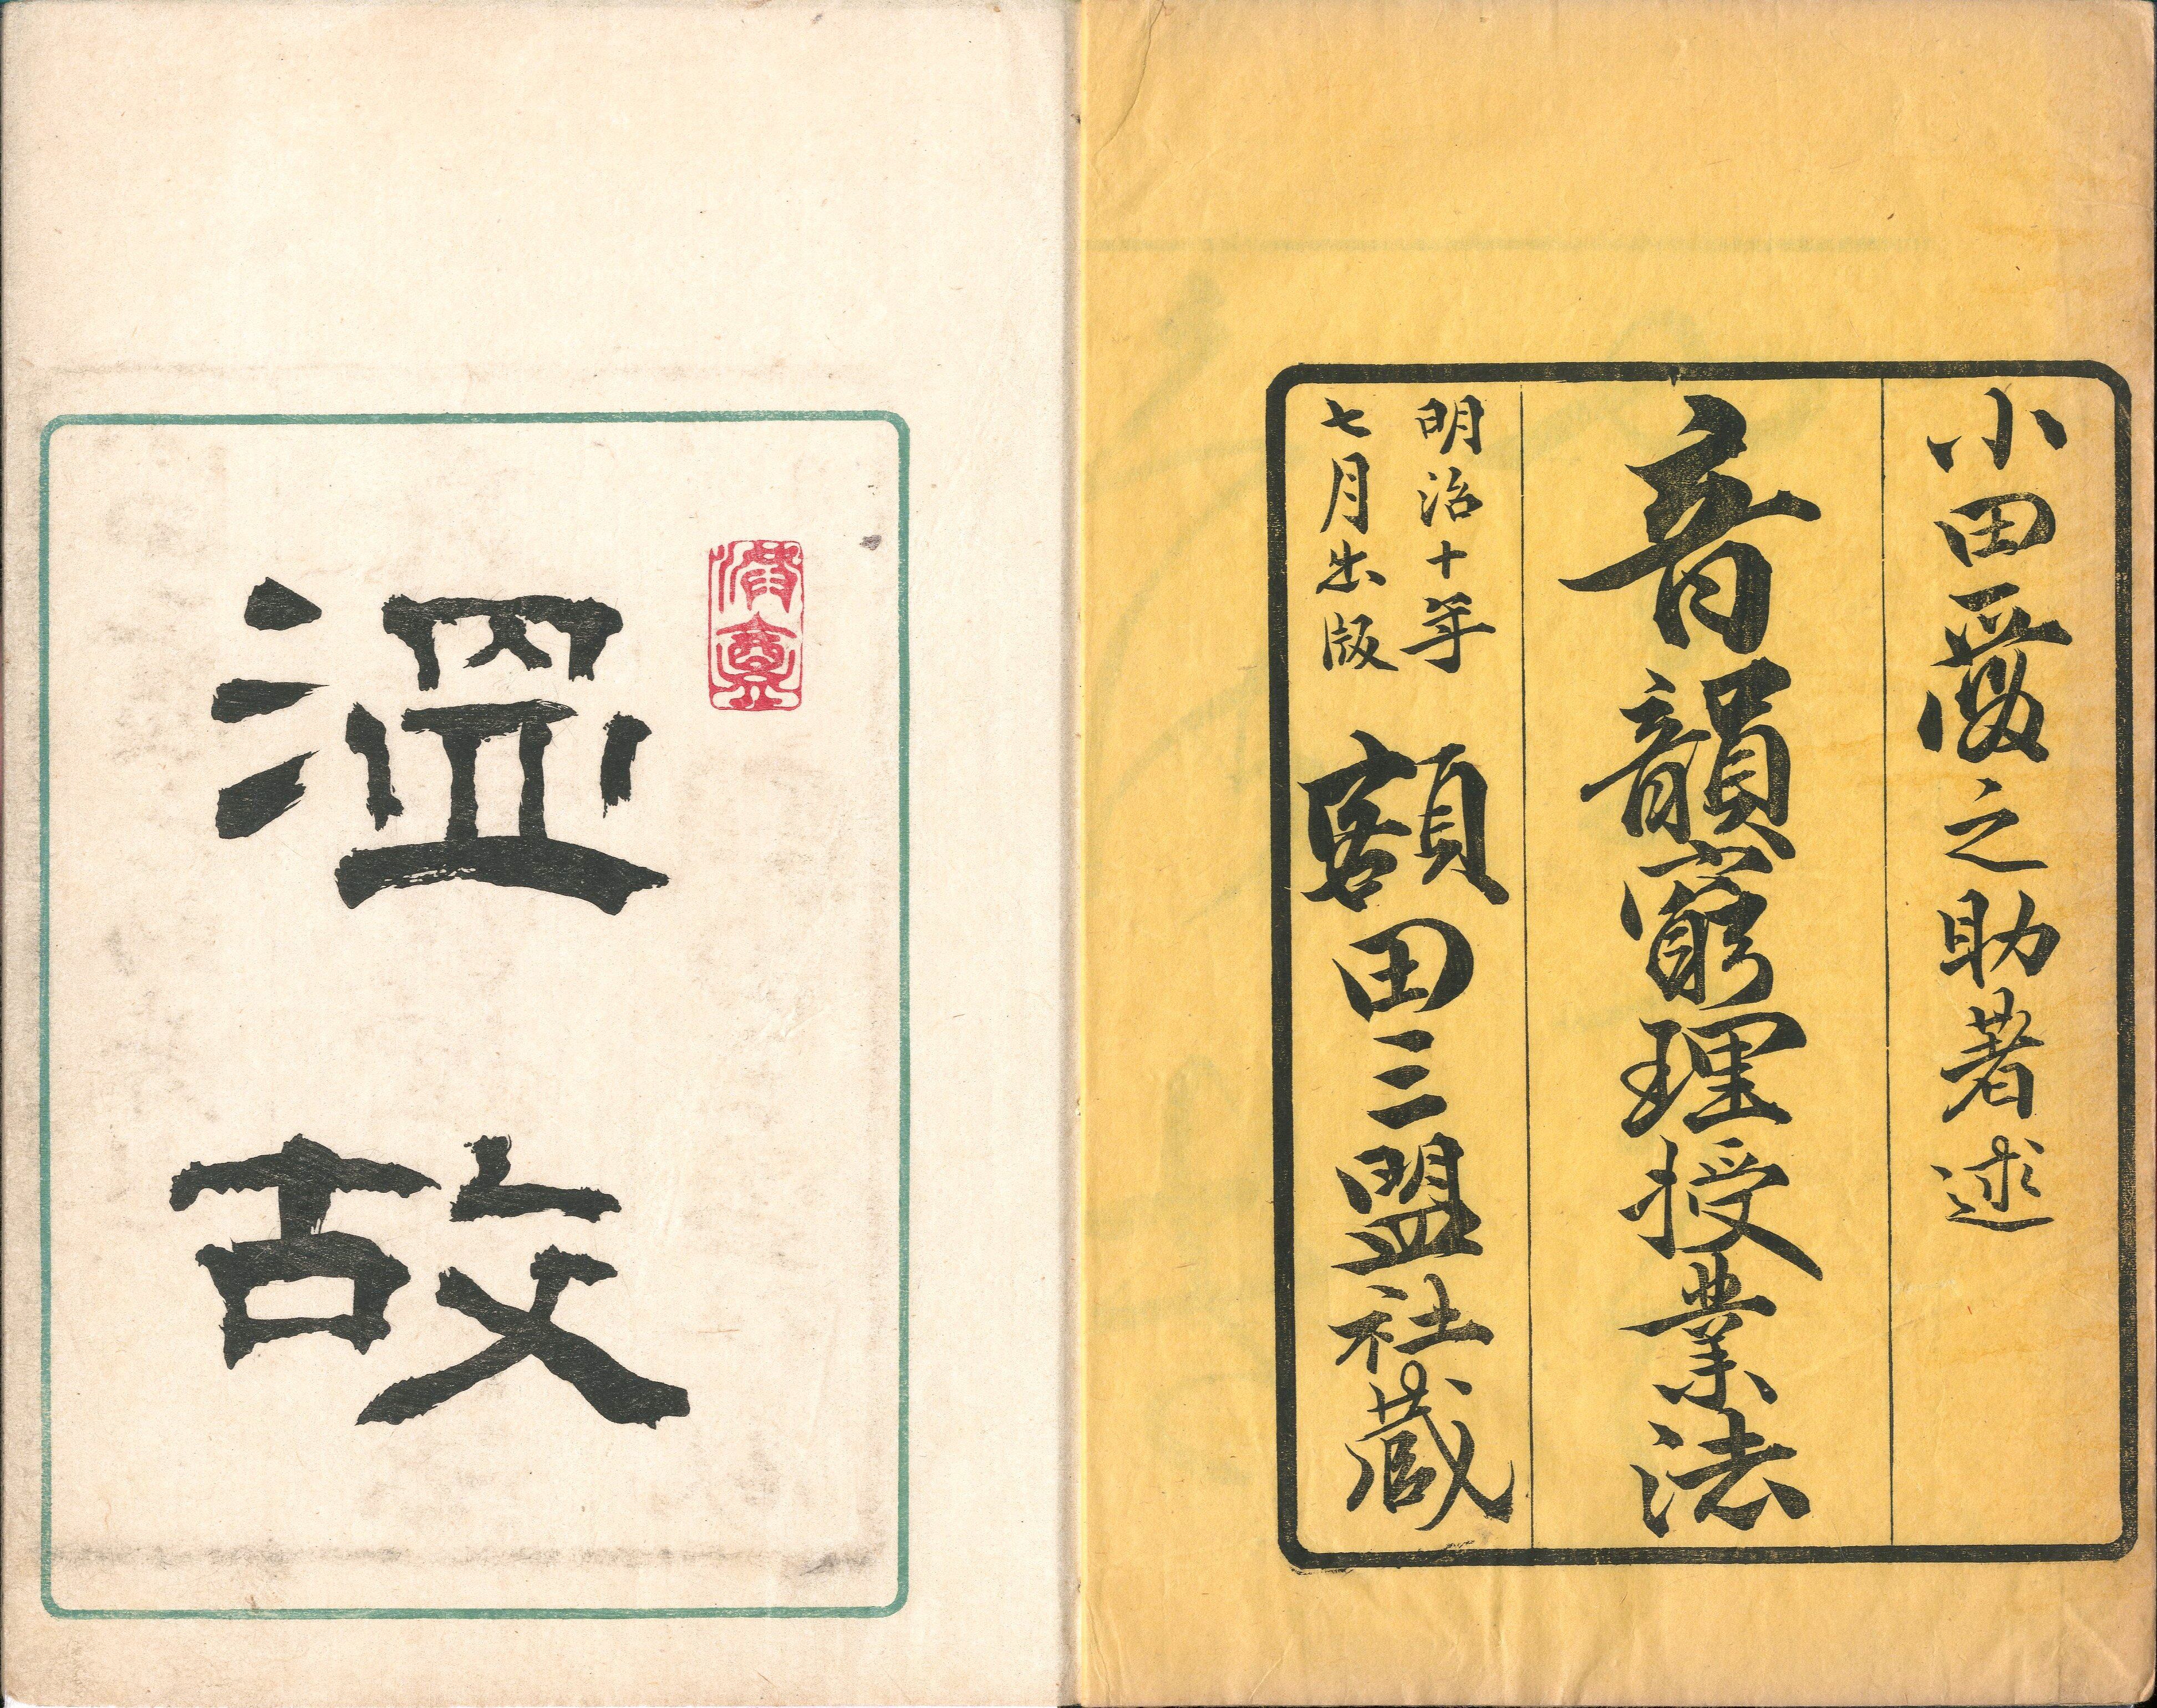 小田愛之助著述
音韻窮理授業法
明治十年
七月出版
額田三盟社蔵
溫
故